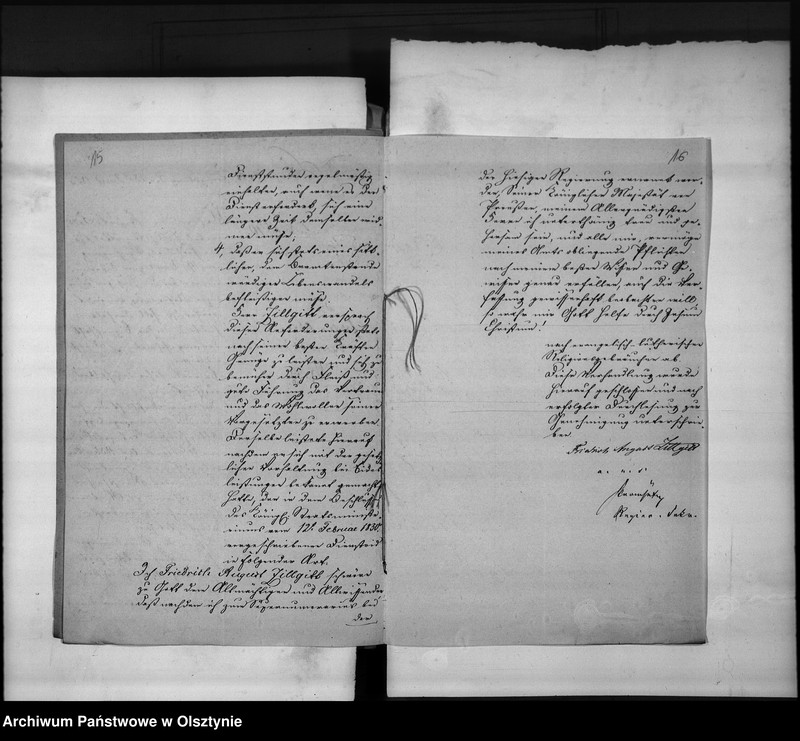 15
Dienststunden regelmäßig
einhalten, auch wenn es der
Dienst erfordert, sich eine
längere Zeit demselben wid-
men müsse;
4, daßer sich stets eines sitt-
lichen, dem Beamtenstande
würdigen Lebenswandels
befleißigen müße.
Herr Zillgitt versprach
diesen Anforderungen stets
nach seinen besten Kräften
Genüge zu leisten und sich zu
bemühen durch Fleiß und
gute Führung das Vertrauen
und das Wohlwollen seiner
Vorgesetzten zu erwerben.
Derselbe leistete hierauf
nachdem er sich mit der gesetz-
lichen Vorhaltung bei Eides-
leistungen bekannt gemacht
hatte, den in dem Beschluße
des Königl. Staatsministe-
riums vom 12t. Februar 1850
vorgeschriebenen Diensteid
in folgender Art.
Ich Friedrich August Zillgitt schwöre
zu Gott dem Allmächtigen und Allwissenden
daß nachdem ich zum Supernumerarius bei
der
16
der hiesigen Regierung ernannt wor-
den, Seiner Königlichen Majestät von
Preußen, meinem Allergnädigsten
Herrn ich unterthänig treu und ge-
horsam sein, und alle mir, vermöge
meines Amts obliegenden Pflichten
nach meinem besten Wissen und Ge-
wissen genau erfüllen, auch die Ver-
fassung gewissenhaft beobachten will,
so wahr mir Gott helfe durch Jesum
Christum!
nach evangelisch-lutherischen
Religionsgebräuchen ab.
Diese Verhandlung wurde
hierauf geschlossen und nach
erfolgter Durchlesung zur
Genehmigung unterschrie-
ben
Friedrich August Zillgitt
a. u. s.
Regier. Sekr.
Archiwum Państwowe w Olsztynie